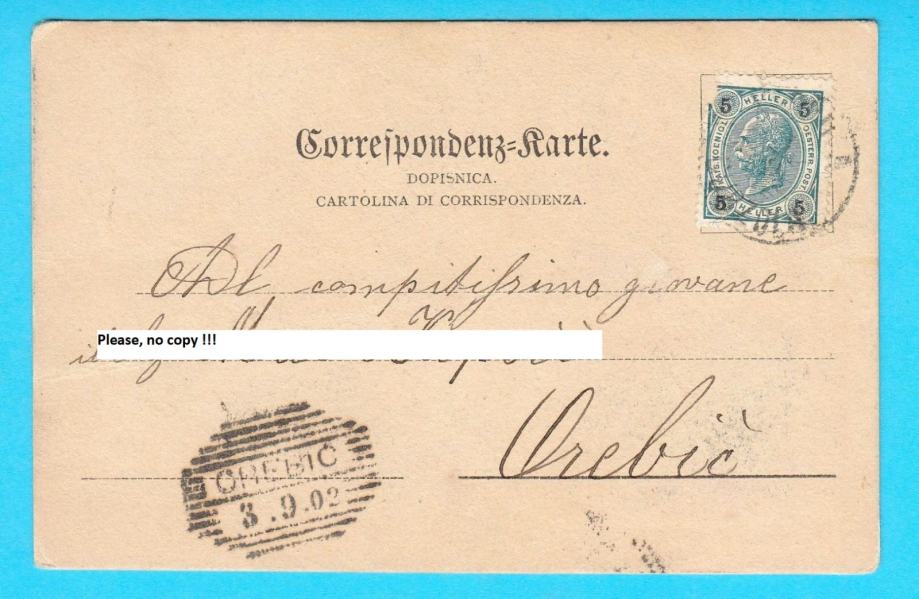 5 HELLER 5
KAIS. KOENIGL. OESTERR. POST
5 HELLER 5
Correspondenz-Karte.
DOPISNICA.
CARTOLINA DI CORRISPONDENZA.
Al compitissimo giovane
Please, no copy !!!
Orebić
OREBIĆ
3.9.02